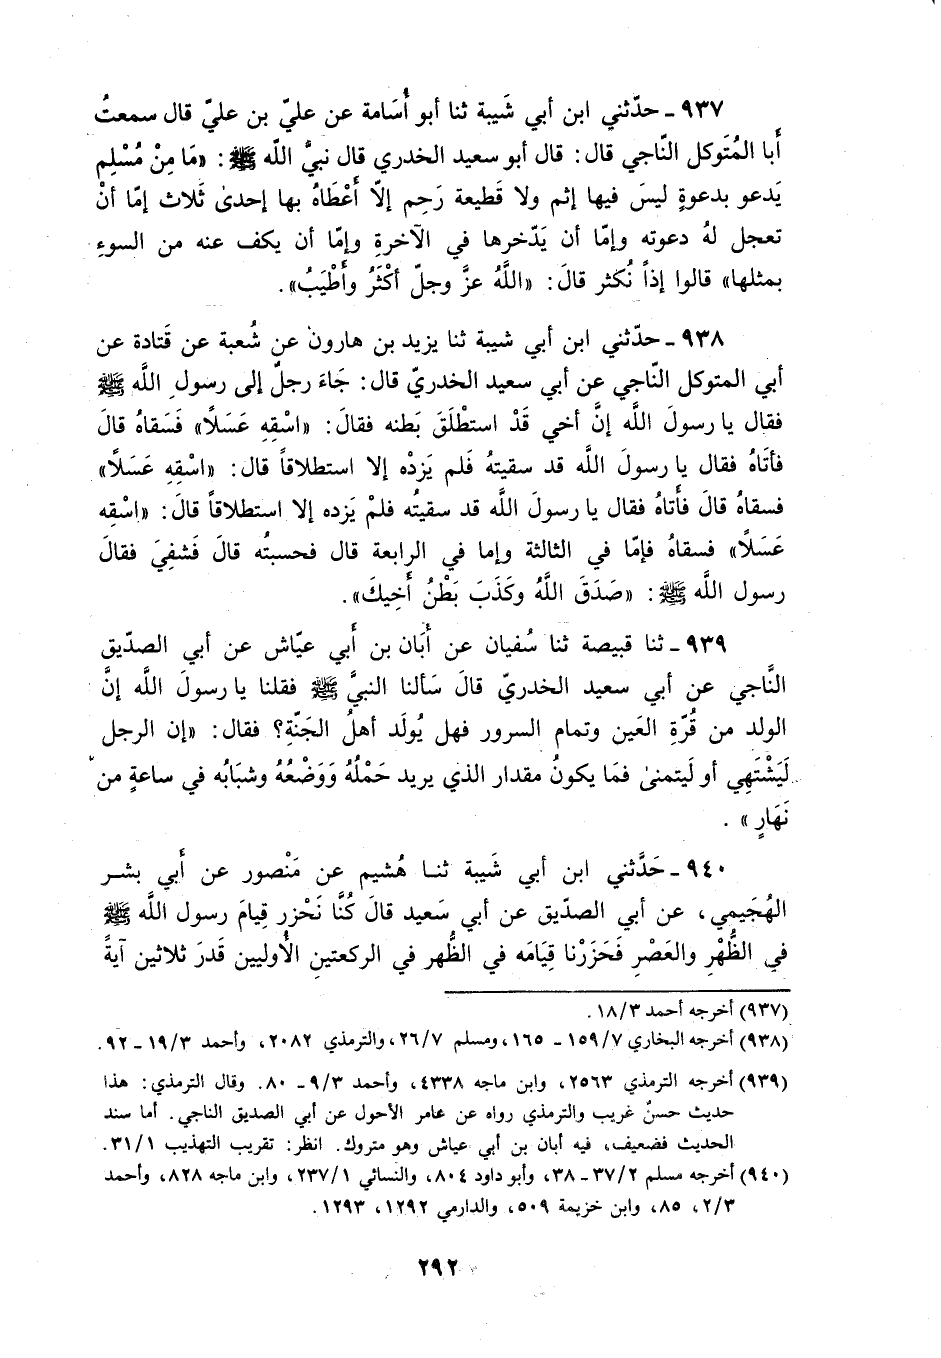 ٩٣٧ـ حدّثني ابن أبي شَيبة ثنا أبو أُسَامة عن عليّ بن عليّ قال سمعتُ
أَبا المُتَوكل النّاجي قال: قال أبو سعيد الخدري قال نبيُّ اللّه ﷺ: «مَا مِنْ مُسْلِم
يَدعو بدعوةٍ ليسَ فيها إثم ولا قطيعة رَحِم إلاّ أَعْطَاهُ بها إحدىٰ ثَلاث إمّا أنْ
تعجل لهُ دعوته وإمّا أن يَدّخرها في الآخرةِ وإمّا أن يكف عنه من السوءِ
بمثلها» قالوا إذاً نُكثر قالَ: «اللَّهُ عزَّ وجلّ أكْثَرُ وأَطْيَبُ».
٩٣٨ـ حدّثني ابن أبي شيبة ثنا يزيد بن هارون عن شُعبة عن قَتادة عن
أبي المتوكل النّاجي عن أبي سعيد الخدريّ قال: جَاءَ رجلٌ إلى رسولِ اللَّه ﷺ
فقال يا رسولَ اللَّه إنَّ أخي قَدْ استطْلَقَ بَطنه فقالَ: «اسْقِهِ عَسَلًا» فَسَقاهُ قالَ
فأتَاهُ فقال يا رسولَ اللَّه قد سقيتهُ فَلم يَزدْه إلا استطلاقاً قال: «اسْقِهِ عَسَلًا»
فسقاهُ قالَ فَأَتاهُ فقال يا رسولَ اللَّه قد سقيتُه فلمْ يَزده إلا استطلاقاً قالَ: «اسْقِه
عَسَلًا» فسقاهُ فإمّا في الثالثة وإما في الرابعة قال فحسبتُه قالَ فَشفِيَ فقالَ
رسول اللَّه ﷺ: «صَدَقَ اللَّهُ وكَذَبَ بَطْنُ أَخِيكَ».
٩٣٩ـ ثنا قبيصة ثنا سُفيان عن أَبَان بن أَبي عيّاش عن أبي الصدّيق
النَّاجي عن أبي سعيد الخدريّ قالَ سَألنا النبيَّ ﷺ فقلنا يا رسولَ اللَّه إنَّ
الولد من قُرّةِ العَين وتمام السرور فهل يُولَد أهلُ الجَنّةِ؟ فقال: «إن الرجل
لَيَشْتَهِي أو لَيتمنىٰ فمَا يكونُ مقدار الذي يريد حَمْلُهُ وَوَضْعُهُ وشبَابُه في ساعةٍ من
نَهَارٍ».
٩٤٠ـ حَدَّثني ابن أبي شَيبة ثنا هُشيم عن مَنْصور عن أَبي بشر
الهُجَيمي، عن أبي الصدّيق عن أبي سَعيد قالَ كُنَّا نَحْزر قِيامَ رسول اللَّه ﷺ
في الظُّهْرِ والعَصْرِ فَحَزَرْنا قِيَامَه في الظُّهر في الركعتينِ الأُوليين قَدرَ ثلاثين آيةً
(٩٣٧) أخرجه أحمد ١٨/٣.
(٩٣٨) أخرجه البخاري ١٥٩/٧ ـ ١٦٥، ومسلم ٢٦/٧، والترمذي ٢٠٨٢، وأحمد ١٩/٣ ـ ٩٢.
(٩٣٩) أخرجه الترمذي ٢٥٦٣، وابن ماجه ٤٣٣٨، وأحمد ٩/٣ ـ ٨٠. وقال الترمذي: هذا
حديث حسنٌ غريب والترمذي رواه عن عامر الأحول عن أبي الصديق الناجي. أما سند
الحديث فضعيف، فيه أبان بن أبي عياش وهو متروك. انظر: تقريب التهذيب ٣١/١.
(٩٤٠) أخرجه مسلم ٣٧/٢ ـ ٣٨، وأبو داود ٨٠٤، والنسائي ٢٣٧/١، وابن ماجه ٨٢٨، وأحمد
٢/٣، ٨٥، وابن خزيمة ٥٠٩، والدارمي ١٢٩٢، ١٢٩٣.
٢٩٢